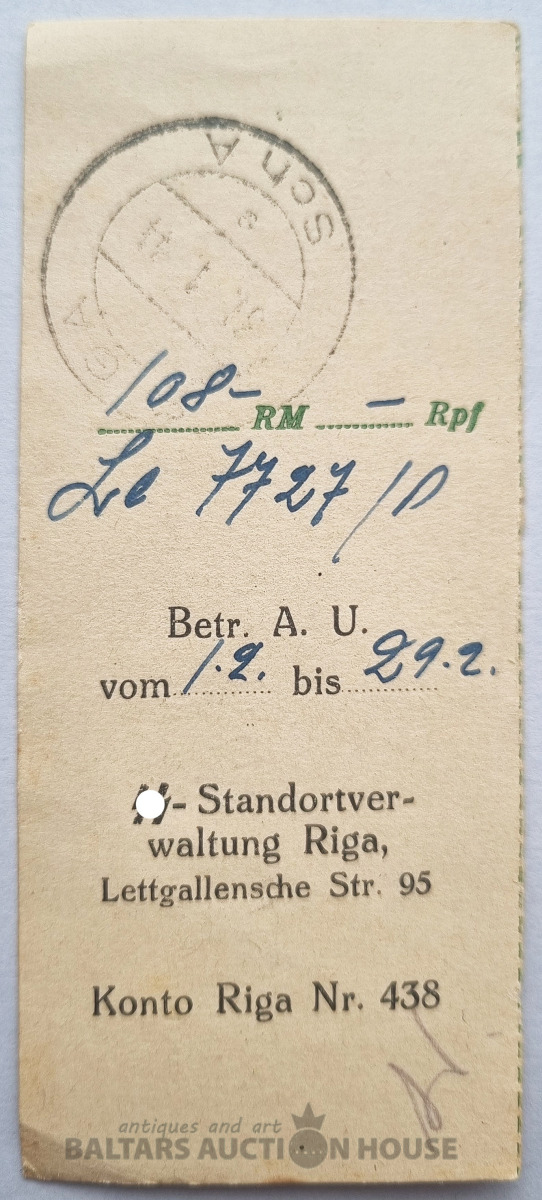 Sch A
108-
RM – Rpf
Le 7727/D
Betr. A. U.
vom 1.2. bis 29.2.
- Standortver-
waltung Riga,
Lettgallensche Str. 95
Konto Riga Nr. 438
antiques and art
BALTARS AUCTION HOUSE